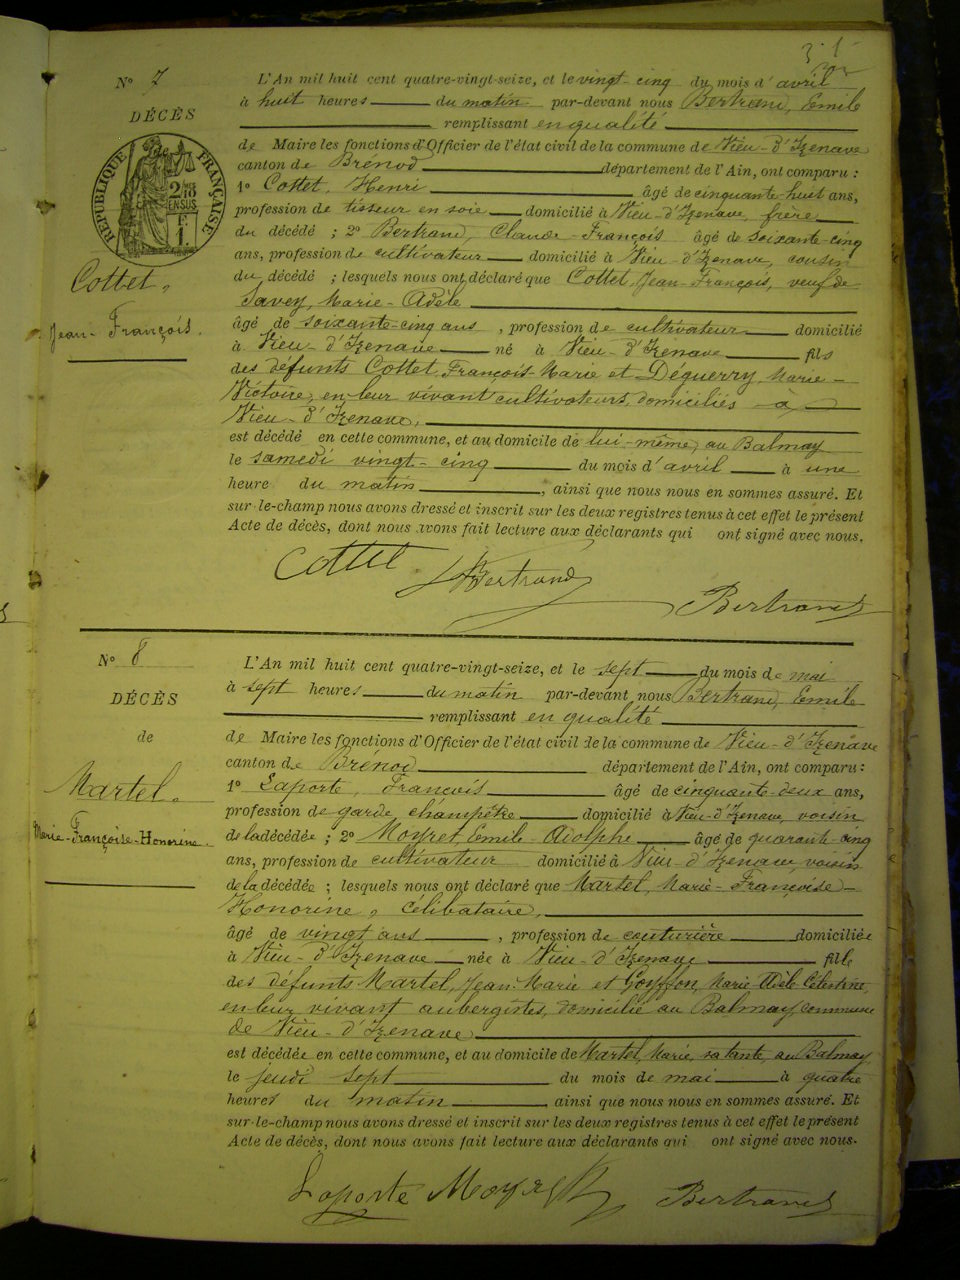 N° 7
DÉCÈS
de
RÉPUBLIQUE FRANÇAISE
Cottet,
Jean-François.
L'An mil huit cent quatre-vingt-seize, et le vingt-cinq du mois d'avril
à huit heures du matin par-devant nous Bertrand, Emile
remplissant en qualité
de Maire les fonctions d'Officier de l'état civil de la commune de Vieu-d'Izenave
canton de Brénod département de l'Ain, ont comparu :
1° Cottet, Henri âgé de cinquante-huit ans,
profession de tisseur en soie domicilié à Vieu-d'Izenave, frère
du décédé ; 2° Bertrand, Claude-François âgé de soixante-cinq
ans, profession de cultivateur domicilié à Vieu-d'Izenave, cousin
du décédé ; lesquels nous ont déclaré que Cottet, Jean-François, veuf de
Savey, Marie-Adèle
âgé de soixante-cinq ans, profession de cultivateur domicilié
à Vieu-d'Izenave né à Vieu-d'Izenave fils
des défunts Cottet, François-Marie et Déguerry, Marie-
Victoire, en leur vivant cultivateurs, domiciliés à
Vieu-d'Izenave,
est décédé en cette commune, et au domicile de lui-même, au Balmay
le samedi vingt-cinq du mois d'avril à une
heure du matin, ainsi que nous nous en sommes assuré. Et
sur-le-champ nous avons dressé et inscrit sur les deux registres tenus à cet effet le présent
Acte de décès, dont nous avons fait lecture aux déclarants qui ont signé avec nous.
Cottet Bertrand Bertrand
N° 8
DÉCÈS
de
Martel,
Marie-Françoise-Honorine.
L'An mil huit cent quatre-vingt-seize, et le sept du mois de mai
à sept heures du matin par-devant nous Bertrand, Emile
remplissant en qualité
de Maire les fonctions d'Officier de l'état civil de la commune de Vieu-d'Izenave
canton de Brénod département de l'Ain, ont comparu :
1° Laporte, François âgé de cinquante-deux ans,
profession de garde champêtre domicilié à Vieu-d'Izenave, voisin
de la décédée ; 2° Moyret, Emile-Adolphe âgé de quarante-cinq
ans, profession de cultivateur domicilié à Vieu-d'Izenave, voisin
de la décédée ; lesquels nous ont déclaré que Martel, Marie-Françoise-
Honorine, célibataire,
âgé de vingt ans, profession de couturière domiciliée
à Vieu-d'Izenave née à Vieu-d'Izenave fille
des défunts Martel, Jean-Marie et Goyffon, Marie-Adèle-Célestine,
en leur vivant aubergistes, domicilié au Balmay, commune
de Vieu-d'Izenave
est décédée en cette commune, et au domicile de Martel, Marie, sa tante, au Balmay
le jeudi sept du mois de mai à quatre
heures du matin, ainsi que nous nous en sommes assuré. Et
sur-le-champ nous avons dressé et inscrit sur les deux registres tenus à cet effet le présent
Acte de décès, dont nous avons fait lecture aux déclarants qui ont signé avec nous.
Laporte Moyret Bertrand